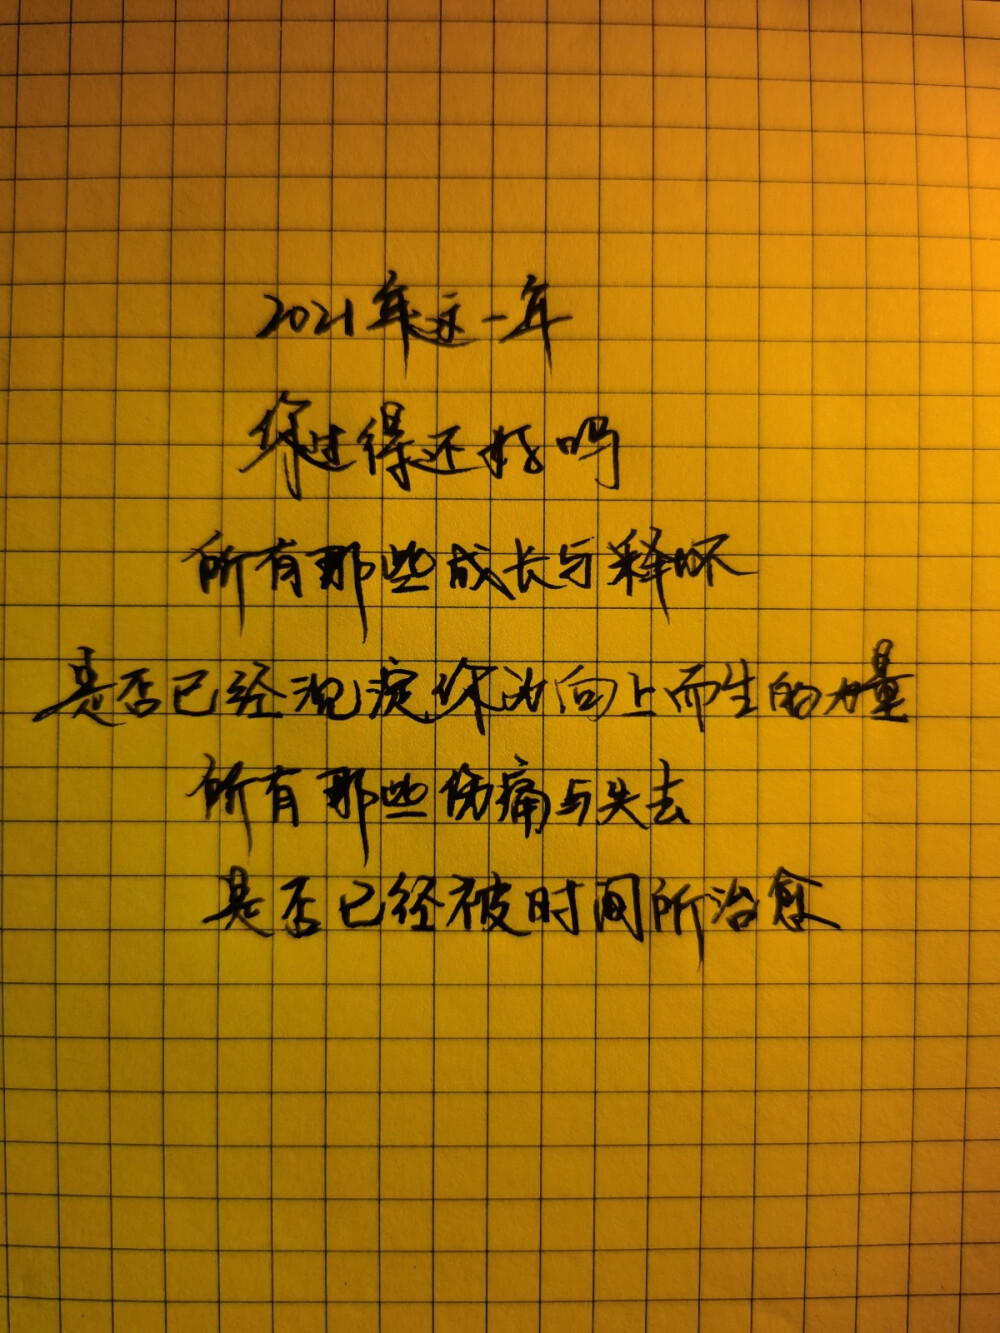 2021年这一年
你过得还好吗
所有那些成长与释怀
是否已经沉淀你为向上而生的力量
所有那些伤痛与失去
是否已经被时间所治愈